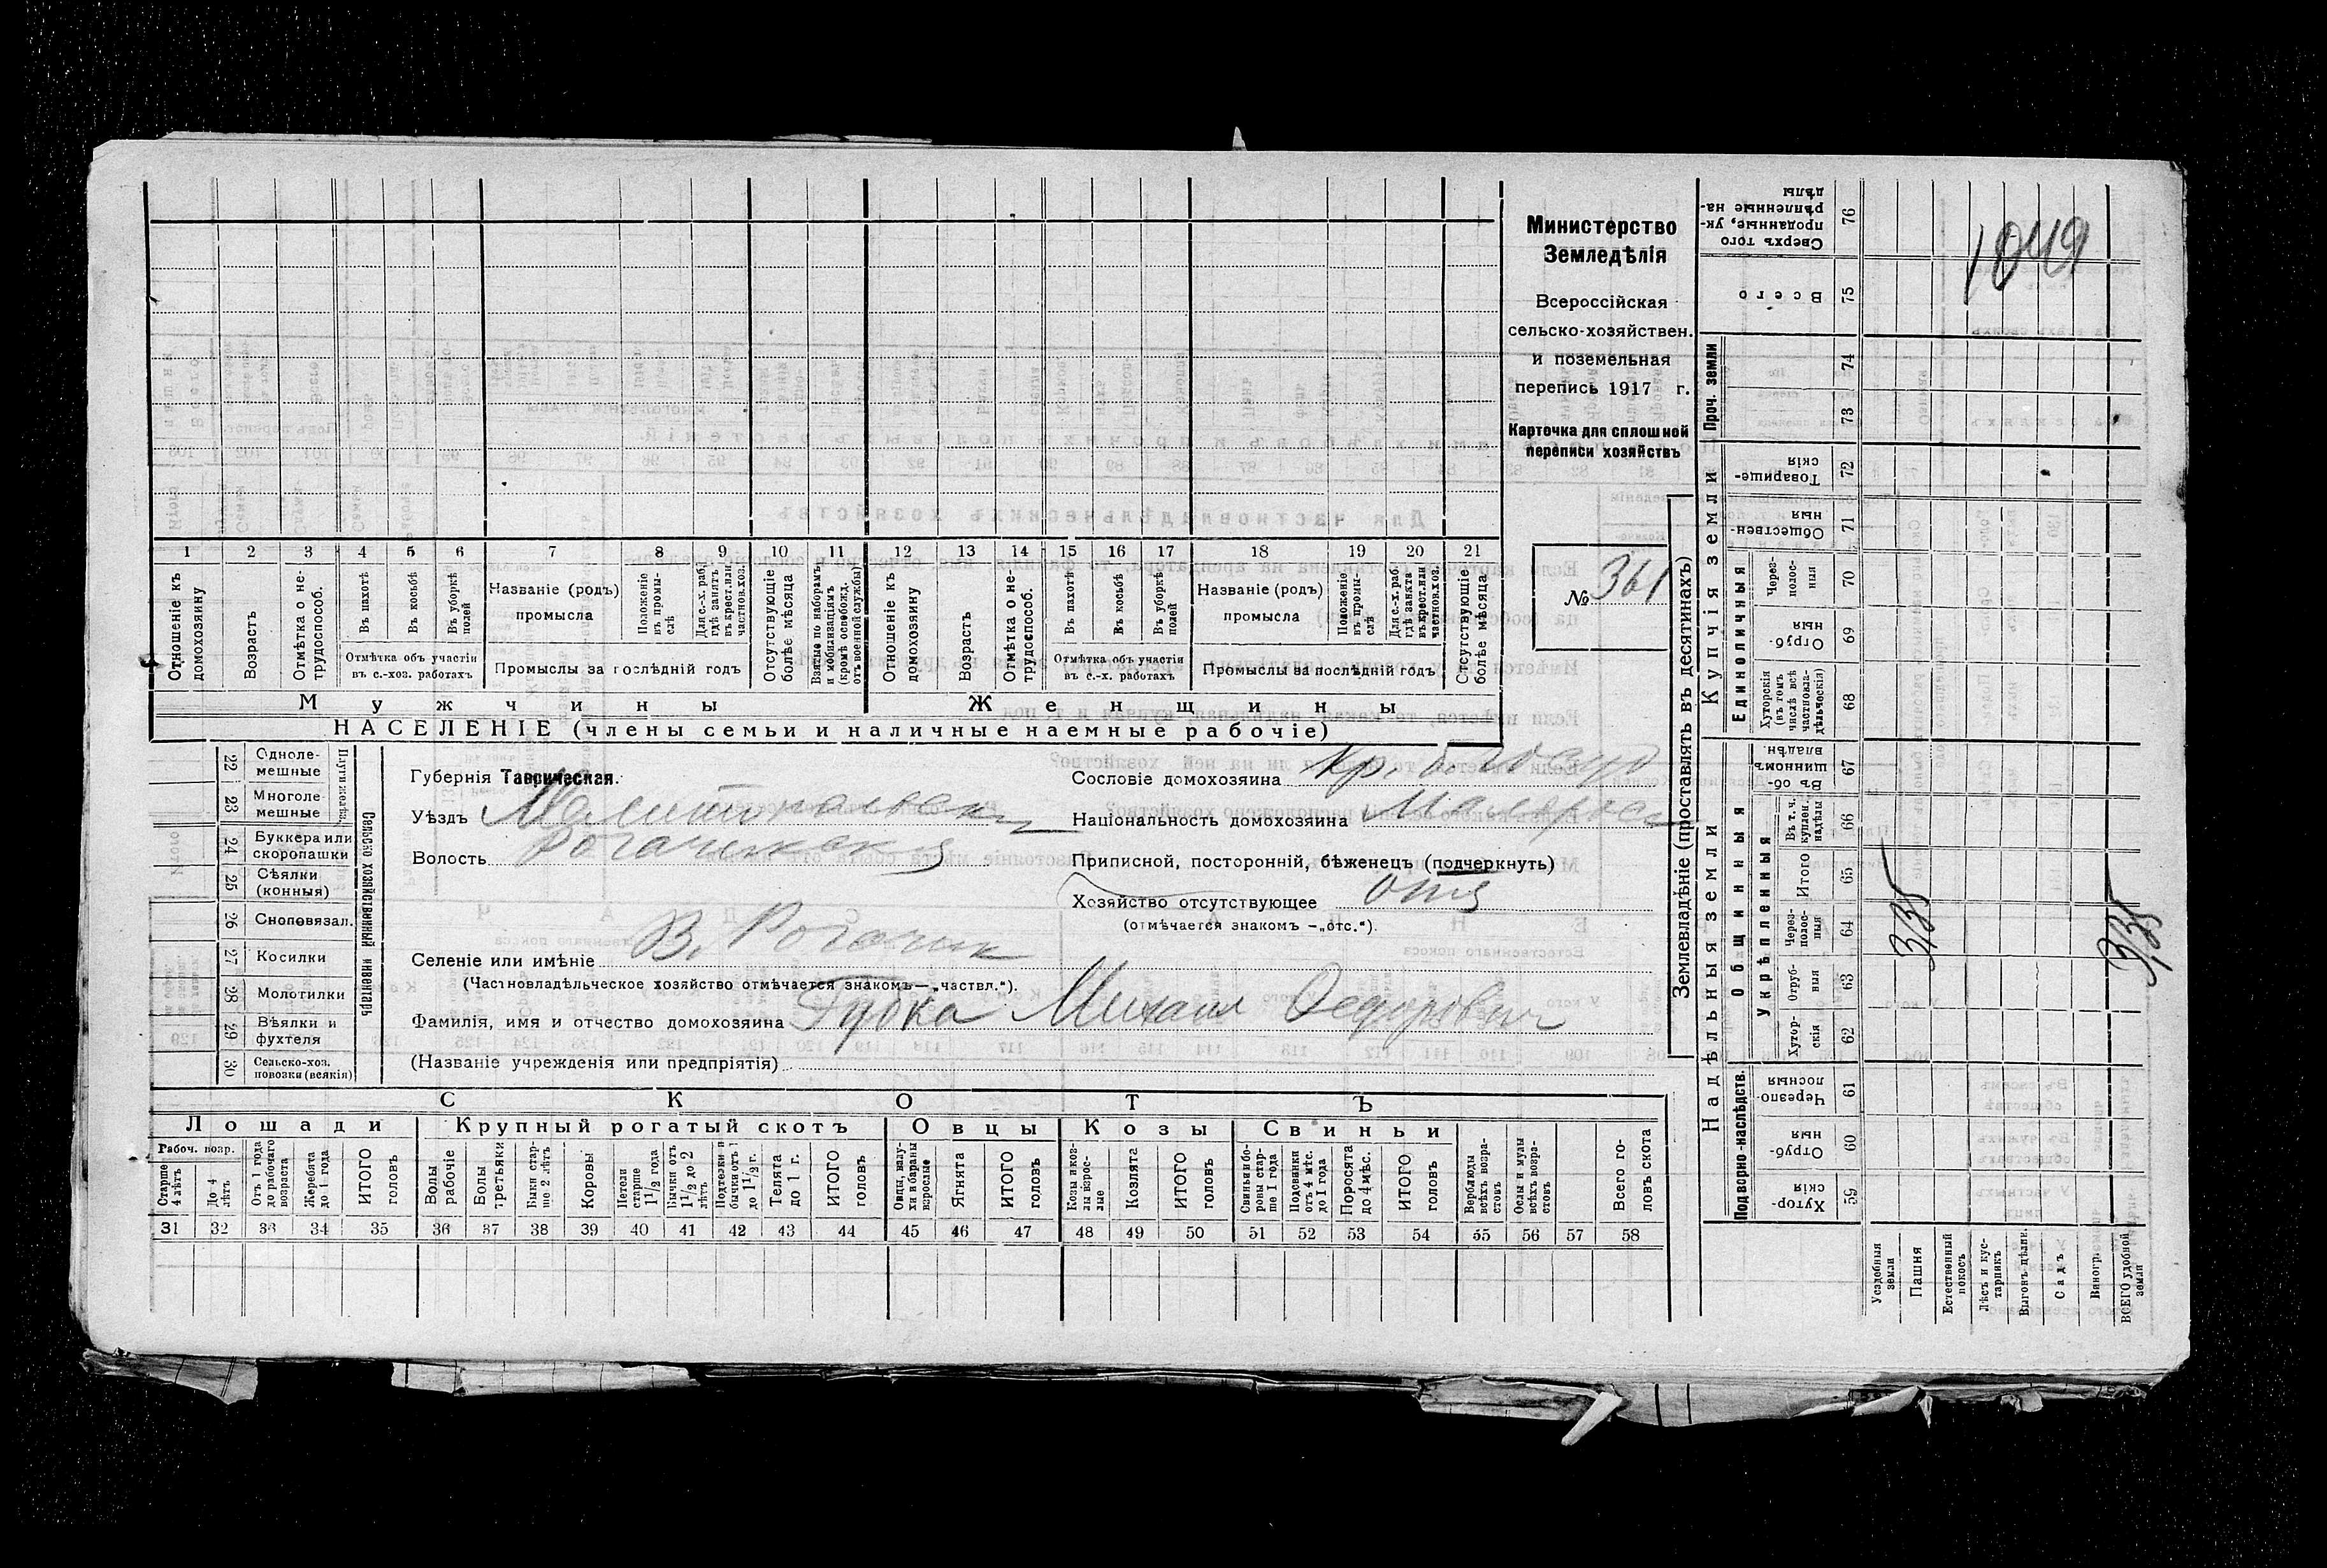 1 2 3 4 5 6 7 8 9 10 11 12 13 14 15 16 17 18 19 20 21
Отношеніе къ домохозяину
Возрастъ
Отмѣтка о не-
трудоспособ.
Въ пахотѣ
Въ косьбѣ
Въ уборкѣ полей
Отмѣтка объ участіи
въ с.-хоз. работахъ
Названіе (родъ)
промысла
Положеніе въ промы-
слѣ
Для с.-х. раб.
гдѣ занятъ
въ крест. или
частнов. хоз.
Промыслы за послѣдній годъ
Отсутствующіе
болѣе мѣсяца
Взятые по наборамъ
и мобилизаціямъ
(кромѣ освобожд.
отъ военной службы)
Отношеніе къ
домохозяину
Возрастъ
Отмѣтка о не-
трудоспособ.
Въ пахотѣ
Въ косьбѣ
Въ уборкѣ
полей
Отмѣтка объ участіи
въ с.-х. работахъ
Названіе (родъ)
промысла
Положеніе
въ промы-
слѣ
Для с.-х. раб.
гдѣ занята
въ крест. или
частнов. хоз.
Промыслы за послѣдній годъ
Отсутствующіе
болѣе мѣсяца
Мужчины
Женщины
НАСЕЛЕНІЕ (члены семьи и наличные наемные рабочіе)
Министерство
Земледѣлія
Всероссійская
сельско-хозяйствен.
и поземельная
перепись 1917 г.
Карточка для сплошной
переписи хозяйствъ
№ 361
Сельско хозяйственный инвентарь
22 Однолемешные
23 Многолемешные
24 Буккера или
скоропашки
25 Сѣялки
(конныя)
26 Сноповязал.
27 Косилки
28 Молотилки
29 Вѣялки и
фухтеля
30 Сельско-хоз.
повозки (всякія)
Губернія Таврическая.
Уѣздъ Мелитопольскій
Волость Рогачикская
Сословіе домохозяина Кр. б. госуд
Національность домохозяина Малоросс
Приписной, посторонній, бѣженецъ (подчеркнуть)
Хозяйство отсутствующее отс
(отмѣчается знакомъ —„отс.“).
Селеніе или имѣніе В. Рогачик
(Частновладѣльческое хозяйство отмѣчается знакомъ—„частвл.“).
Фамилія, имя и отчество домохозяина Губка Михаил Федорович
(Названіе учрежденія или предпріятія)
СКОТЪ
Лошади
Крупный рогатый скотъ
Овцы
Козы
Свиньи
Рабоч. возр.
Старше
4 лѣтъ
До 4
лѣтъ
Отъ 1 года
до рабочаго
возраста
Жеребята
до 1 года
ИТОГО
головъ
Волы
рабочіе
Волы
третьяки
Быки стар-
ше 2 лѣтъ
Коровы
Нетели
старше
1 1/2 года
Бычки отъ
1 1/2 до 2
лѣтъ
Подтелки и
бычки отъ 1
до 1 1/2 г.
Телята
до 1 г.
ИТОГО
головъ
Овцы, валу-
хи и бараны
взрослые
Ягнята
ИТОГО
головъ
Козы и коз-
лы взрос-
лые
Козлята
ИТОГО
головъ
Свиньи и бо-
ровы стар-
ше 1 года
Подсвинки
отъ 4 мѣс.
до 1 года
Поросята
до 4 мѣс.
ИТОГО
головъ
Верблюды
всѣхъ возра-
стовъ
Ослы и мулы
всѣхъ возра-
стовъ
Всего го-
ловъ скота
31 32 33 34 35 36 37 38 39 40 41 42 43 44 45 46 47 48 49 50 51 52 53 54 55 56 57 58
Землевладѣніе (проставлять въ десятинахъ)
Надѣльныя земли
Купчія земли
Проч. земли
Подворно-наслѣдств.
Общинныя
Укрѣпленныя
Единоличныя
Сверхъ того
проданные, ук-
рѣпленные на-
дѣлы 76
Всего 75
74
73
Товарище-
скія 72
Обществен-
ныя 71
Через-
полос-
ныя 70
Отруб-
ныя 69
Хуторскія
(въ томъ
числѣ всѣ
частновла-
дѣльческія) 68
Въ об-
щинномъ
владѣн. 67
Въ т. ч.
куплен.
надѣлы 66
Итого 65
Через-
полос-
ныя 64
Отруб-
ныя 63
Хутор-
скія 62
Черезпо-
лосныя 61
Отруб-
ныя 60
Хутор-
скія 59
Усадебныя
земли
Пашня
Естественный
покосъ
Лѣсъ и кус-
тарникъ
Выгонъ цѣлин.
Садъ
Виногр.
ВСЕГО удобной
земли
1049